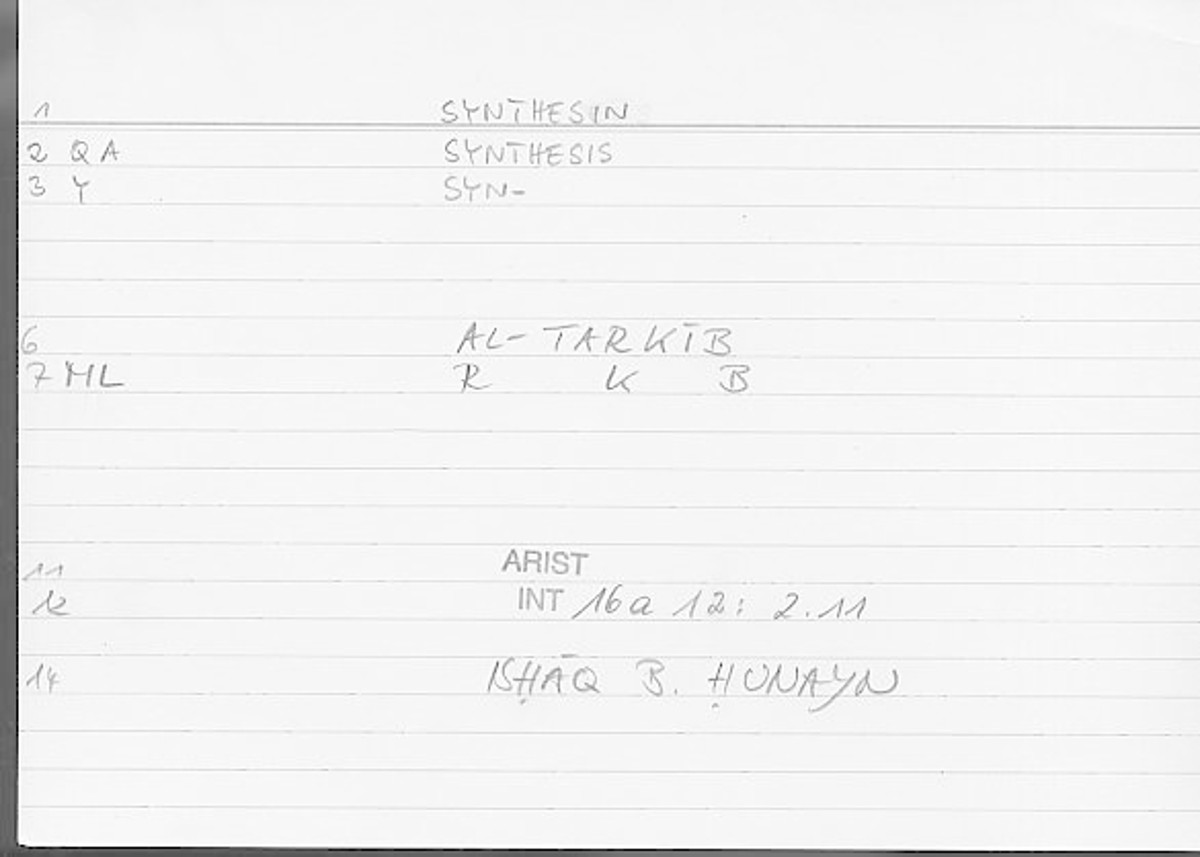 1 SYNTHESIN
2 QA SYNTHESIS
3 Y SYN-
6 AL-TARKĪB
7 ML R K B
11 ARIST
12 INT 16a 12: 2.11
14 ISḤĀQ B. ḤUNAYN